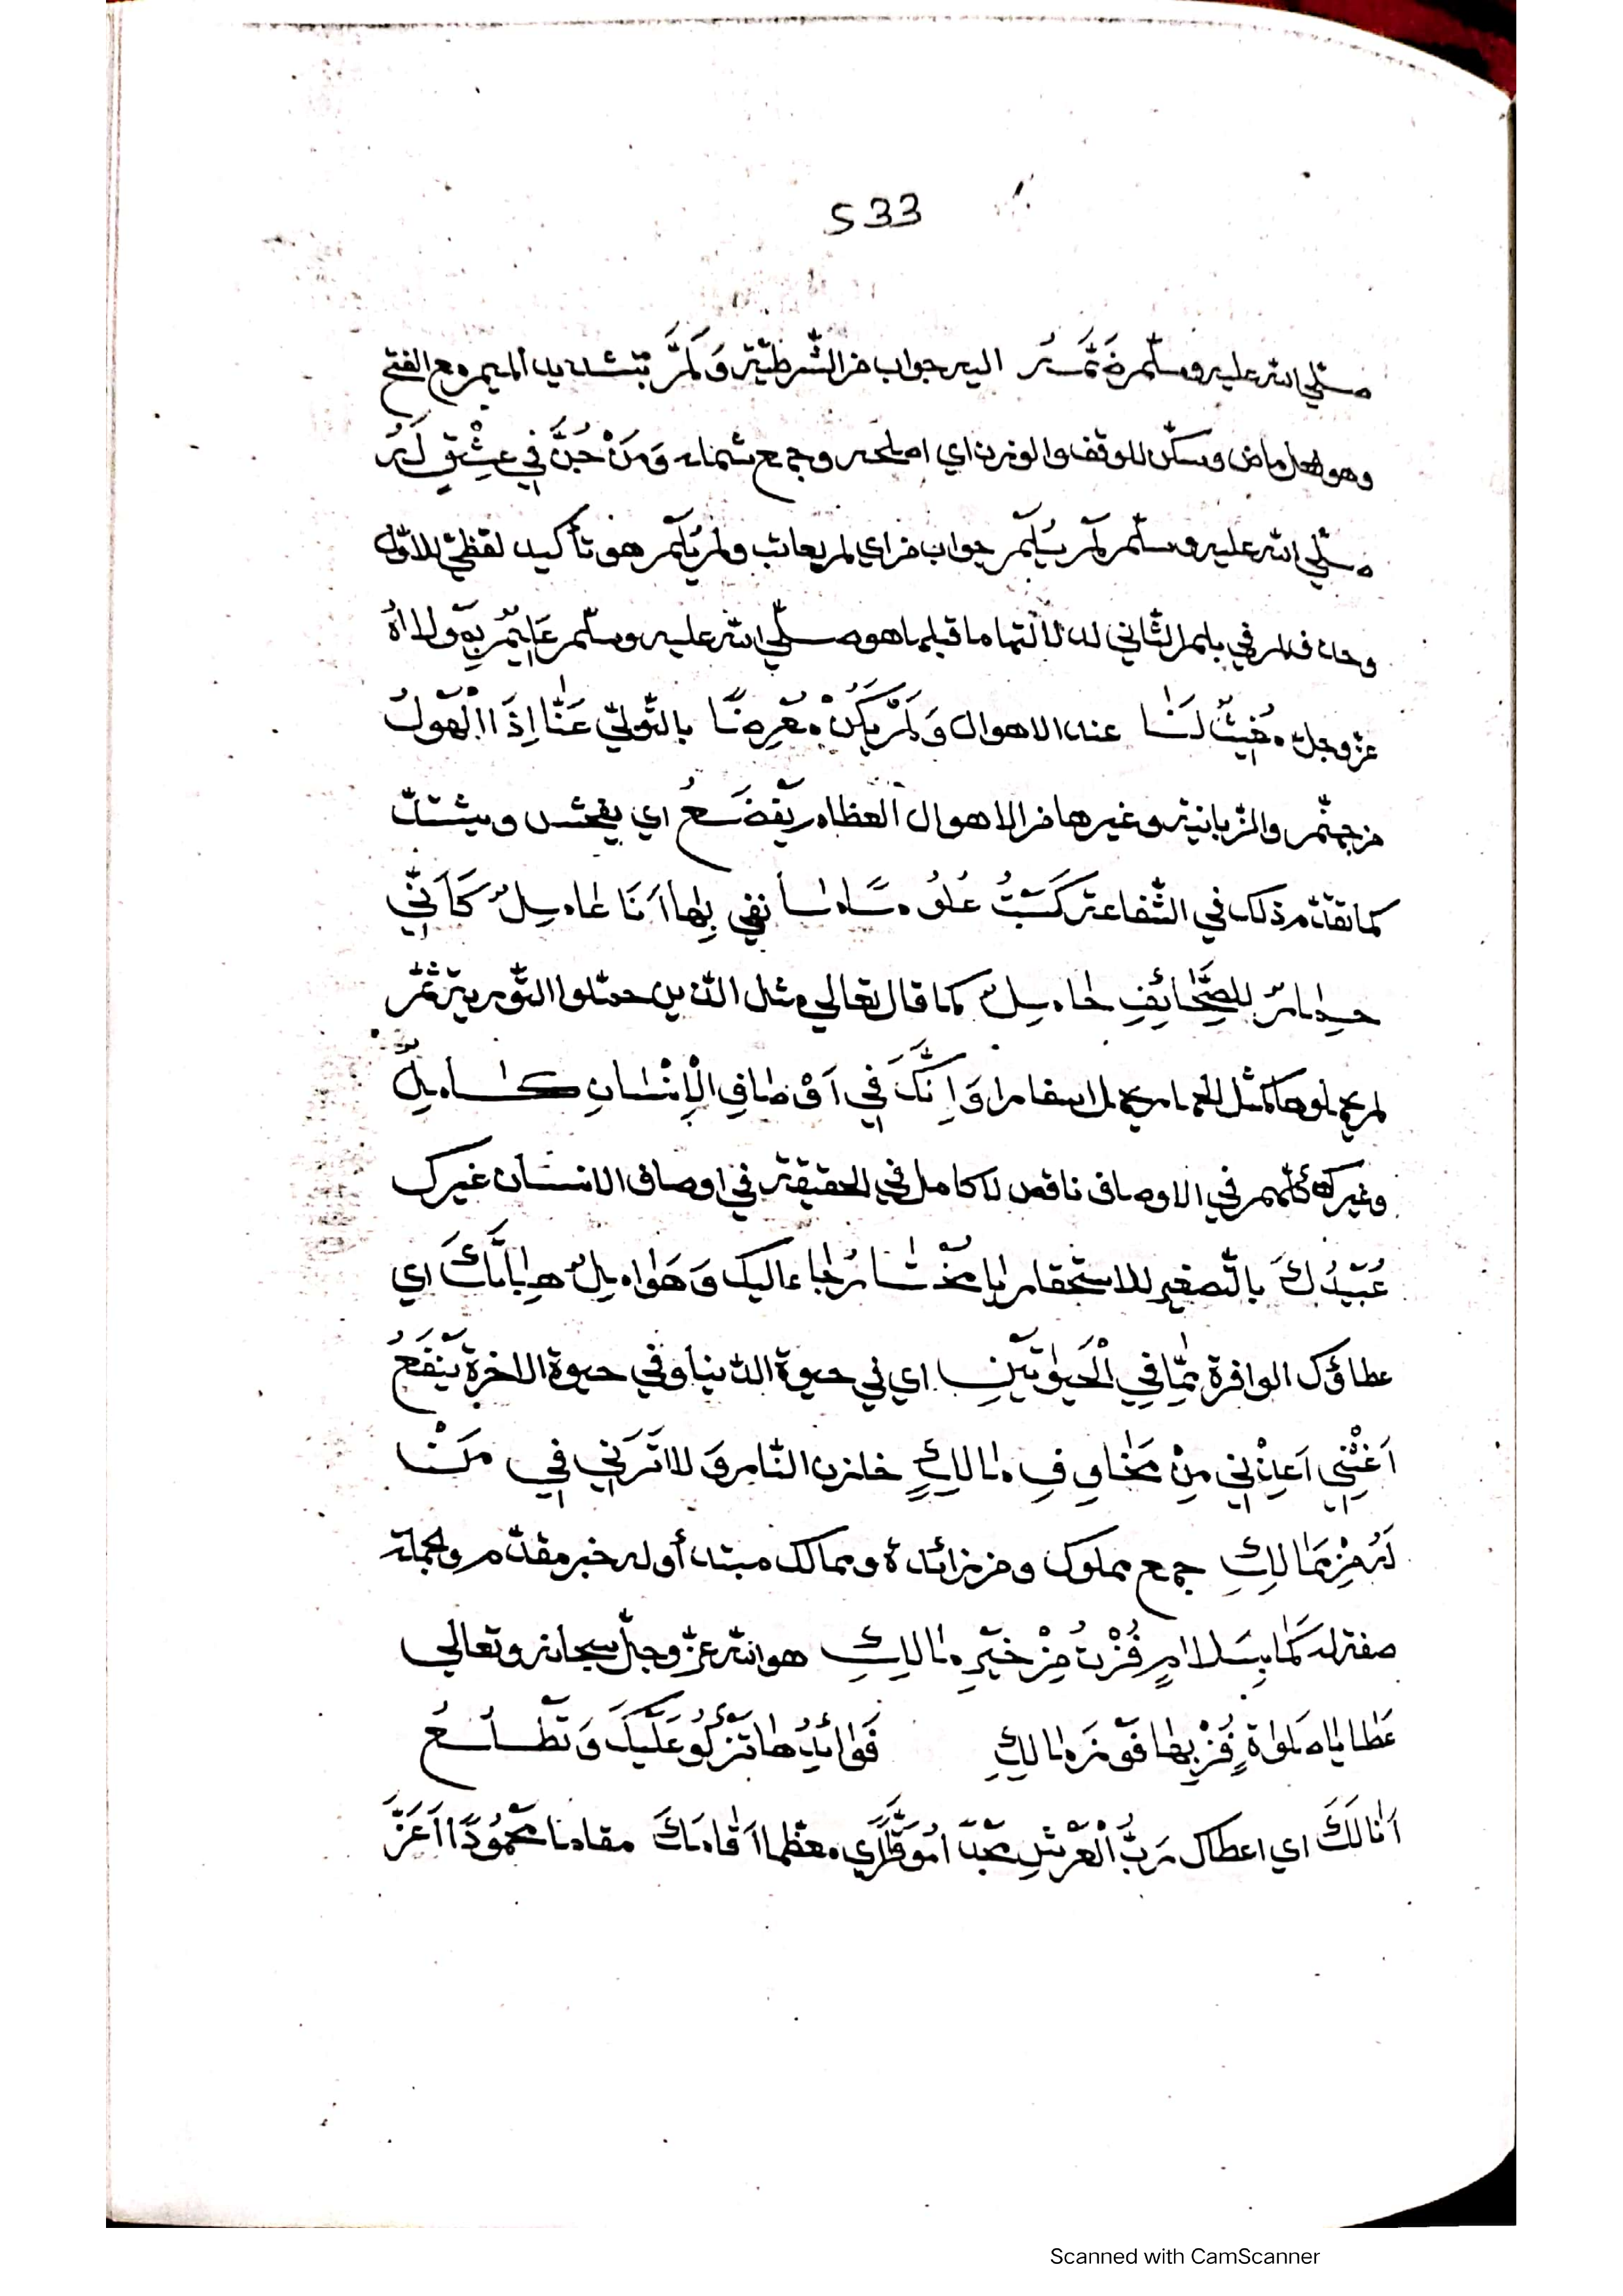 533
صلّي الله عليه وسلّم ضَمَّــهُ اليه جواب من الشّرطيّة وَلَمَّ بتشديد الميم مع الفتح
وهو فعل ماض وسكّن للوقف والوزن اي اصلحه وجمع شمله وَمَنْ جُنَّ فِي عِشْقٍ لَهُ
صلّي الله عليه وسلّم لَمْ يُلَمْ جواب من اي لم يعاتب ولَمْ يُلَمْ هو تأكيد لفظيّ للاوّل
وحذف لم في يلم الثّاني لدلالتها ما قبلها هو صلّي الله عليه وسلّم عَلِيْمٌ بِمَوْلَاهُ
عزّوجلّ مُغِيْثٌ لَنَا عند الاهوال وَلَمْ يَكُنْ مُعْرِضًا بالتّولّي عَنَّا اِذَا الْهَوْلُ
من جهنّم والزّبانية وغيرها من الاهوال العظام يَفْضَــعُ اي يفحش ويشتدّ
كما تقدّم ذلك في الشّفاعة كَسَبْتُ عُلُوْمًا مَا نفي بِهَا اَنَا عَامِلٌ كَأَنِّي
حِمَارٌ لِلصَّحَائِفِ حَامِلٌ كما قال تعالي مثل الّذين حمّلوا التّورية ثمّ
لم يحملوها كمثل الحمار يحمل اسفارا وَاِنَّكَ فِي اَوْصَافِ الْاِنْسَانِ كَــامِلٌ
وغيرك كلّهم في الاوصاف ناقص لا كامل في الحقيقة في اوصاف الانسان غيرك
عُبَيْدُكَ بالتّصغير للاستحقار يَا مُخْتَــارُ جَا عاليك وَهَوَامِلٌ هِبَاتُكَ اي
عطاؤك الوافرة مِمَّا فِي الْحَيٰوتَيْنِ اي في حيوة الدّنيا وفي حيوة الاخرة يَنْفَعُ
اَغِثْنِي اَعِذْنِي مِنْ مَخَاوِفِ مَالِكٍ خازن النّار وَلَا تَرَنِي فِي مَنْ
لَهُ مِنْ مَمَالِكِ جمع مملوك ومن زائدة وممالك مبتدأ وله خبر مقدّم والجملة
صفة له كَمَا بِسَلَامٍ فُزْتُ مِنْ خَيْرِ مَالِكِ هو الله عزّوجلّ سبحانه وتعالي
عَطَايَا صَلٰوةٍ فُزْ بِهَا فَوْزَ مَالِكِ فَوَائِدُهَا تَزْكُوْ عَلَيْكَ وَتَطْــلَــعُ
اَنَالَكَ اي اعطاك رَبُّ الْعَرْشِ مَجْدًا مُوَقَّرًا اي معظما اَقَامَكَ مقاما مَحْمُوْدًا اَعَزَّ
Scanned with CamScanner